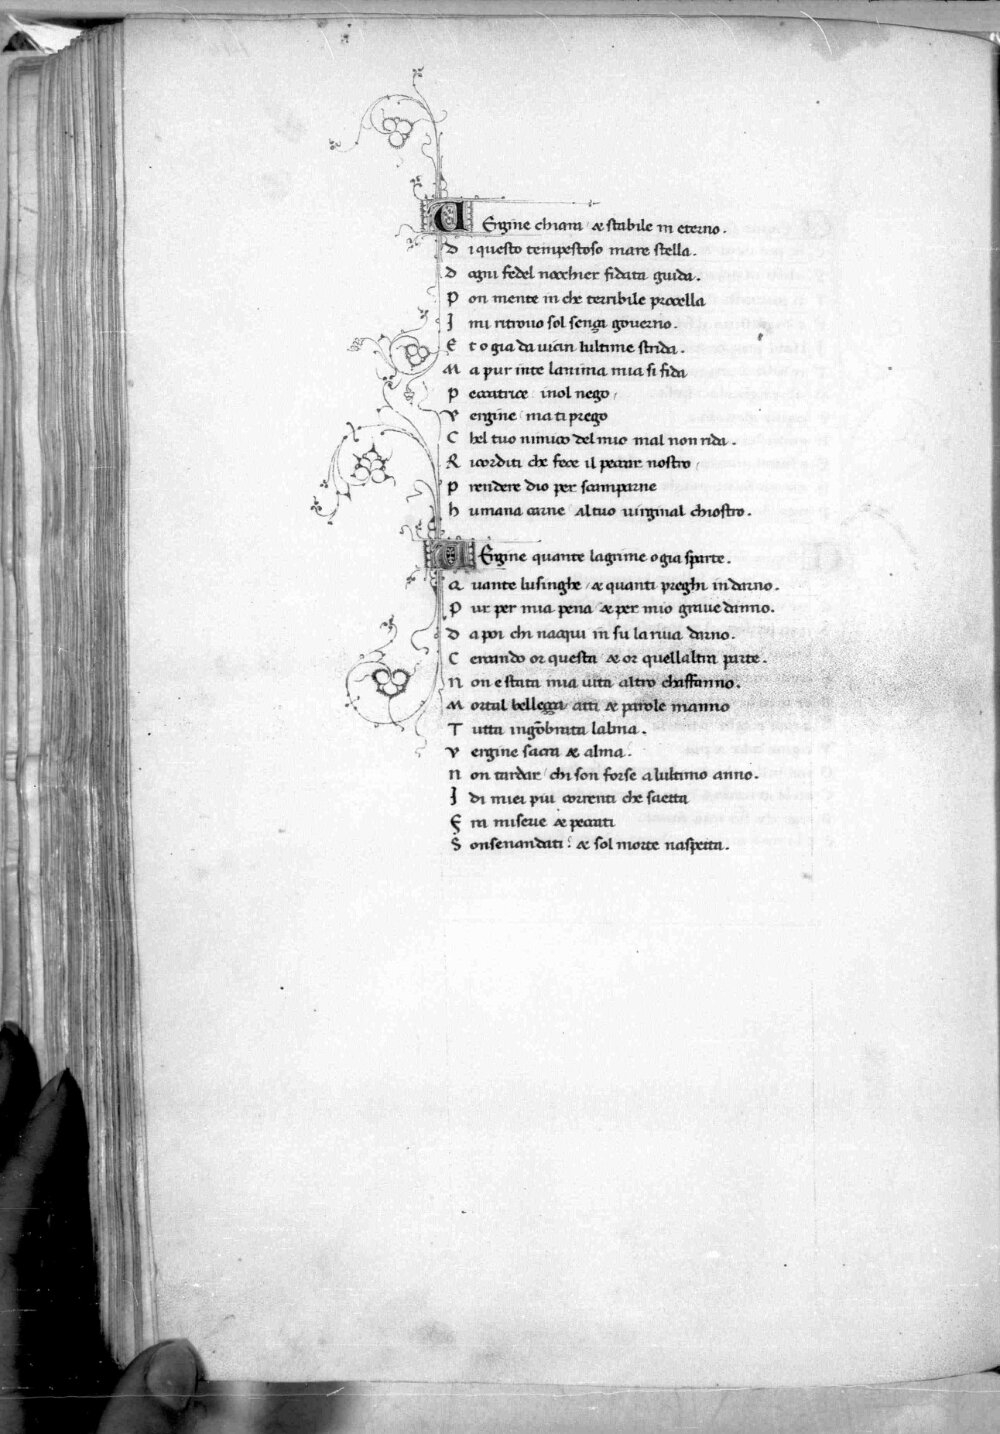 VErgine chiara / & stabile in eterno.
D i questo tempestoso mare stella.
D ogni fedel nocchier fidata guida.
P on mente in che terribile procella
I mi ritrovo sol senza governo.
E t o gia da vicin lultime strida.
M a pur in te lanima mia si fida
P eccatrice i nol nego /
V ergine / ma ti prego
C hel tuo nimico del mio mal non rida.
R icorditi che fece il peccar nostro /
P rendere dio per scamparne
H umana carne al tuo virginal chiostro.
VErgine quante lagrime o gia sparte.
Q uante lusinghe / & quanti preghi indarno.
P ur per mia pena & per mio grave danno.
D a poi chi nacqui in su la riva darno.
C ercando or questa & or quellaltra parte.
N on e stata mia vita altro chaffanno.
M ortal bellezza atti & parole manno
T utta ingōbrata lalma.
V ergine sacra & alma.
N on tardar / chi son forse a lultimo anno.
I di miei piu correnti che saetta
F ra miserie & peccati
S onsenandati : & sol morte naspetta.